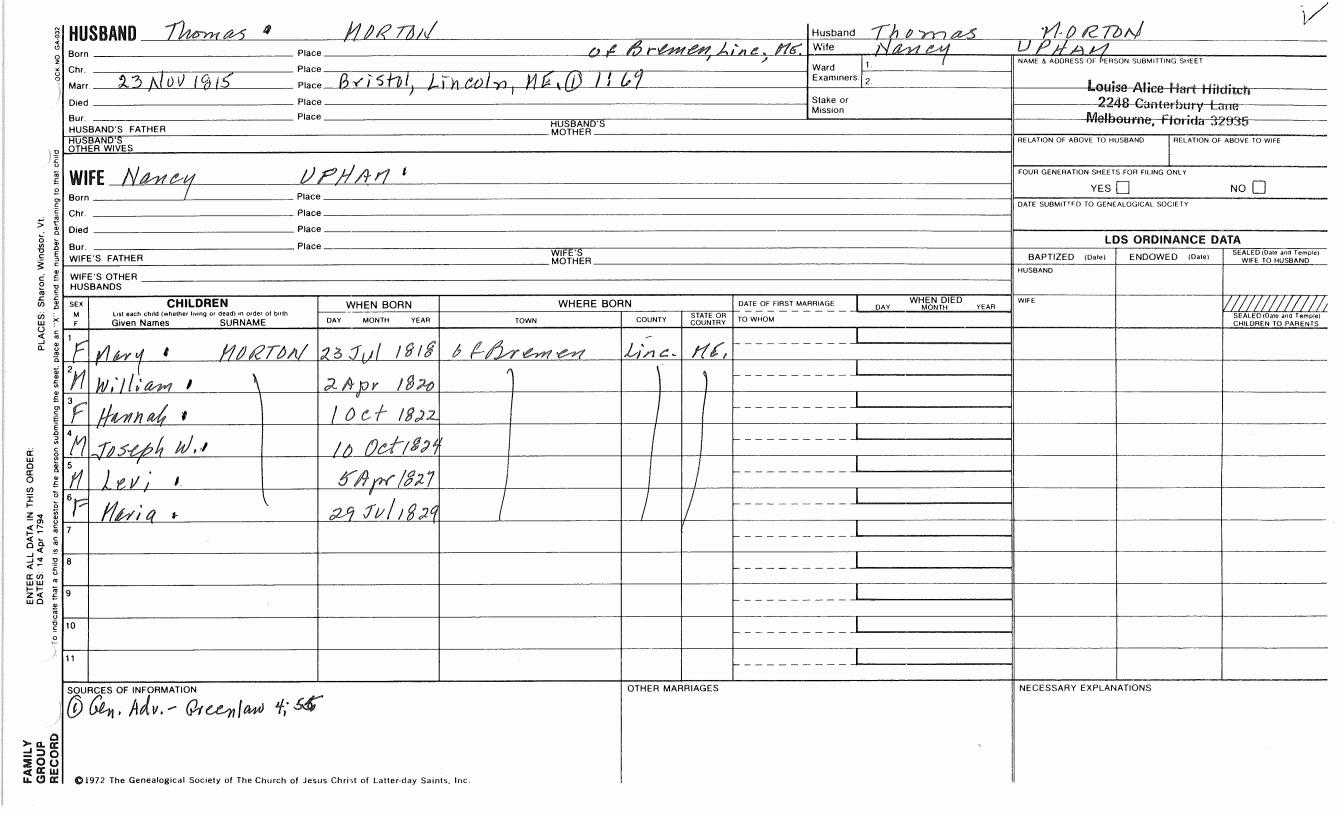 HUSBAND Thomas MORTON
Born Place of Bremen, Linc, ME.
Chr. Place
Marr 23 NOV 1815 Place Bristol, Lincoln, ME. ① 1:69
Died Place
Bur. Place
HUSBAND'S FATHER HUSBAND'S MOTHER
HUSBAND'S OTHER WIVES
WIFE Nancy UPHAM
Born Place
Chr. Place
Died Place
Bur. Place
WIFE'S FATHER WIFE'S MOTHER
WIFE'S OTHER HUSBANDS
Husband Thomas MORTON
Wife Nancy UPHAM
Ward Examiners 1. 2.
Stake or Mission
NAME & ADDRESS OF PERSON SUBMITTING SHEET
Louise Alice Hart Hilditch
2248 Canterbury Lane
Melbourne, Florida 32935
RELATION OF ABOVE TO HUSBAND RELATION OF ABOVE TO WIFE
FOUR GENERATION SHEETS FOR FILING ONLY
YES NO
DATE SUBMITTED TO GENEALOGICAL SOCIETY
LDS ORDINANCE DATA
BAPTIZED (Date) ENDOWED (Date) SEALED (Date and Temple) WIFE TO HUSBAND
HUSBAND
WIFE
SEALED (Date and Temple) CHILDREN TO PARENTS
SEX M F CHILDREN WHEN BORN WHERE BORN DATE OF FIRST MARRIAGE WHEN DIED
List each child (whether living or dead) in order of birth
Given Names SURNAME DAY MONTH YEAR TOWN COUNTY STATE OR COUNTRY TO WHOM DAY MONTH YEAR
1 F Mary MORTON 23 Jul 1818 of Bremen Linc. ME.
2 M William 2 Apr 1820
3 F Hannah 1 Oct 1822
4 M Joseph W. 10 Oct 1824
5 M Levi 5 Apr 1827
6 F Maria 29 Jul 1829
7
8
9
10
11
SOURCES OF INFORMATION OTHER MARRIAGES NECESSARY EXPLANATIONS
① Gen. Adv. - Greenlaw 4;
©1972 The Genealogical Society of The Church of Jesus Christ of Latter-day Saints, Inc.
FAMILY
GROUP
RECORD
ENTER ALL DATA IN THIS ORDER:
DATES: 14 Apr 1794 PLACES: Sharon, Windsor, Vt.
To indicate that a child is an ancestor of the person submitting the sheet, place an "X" behind the number pertaining to that child